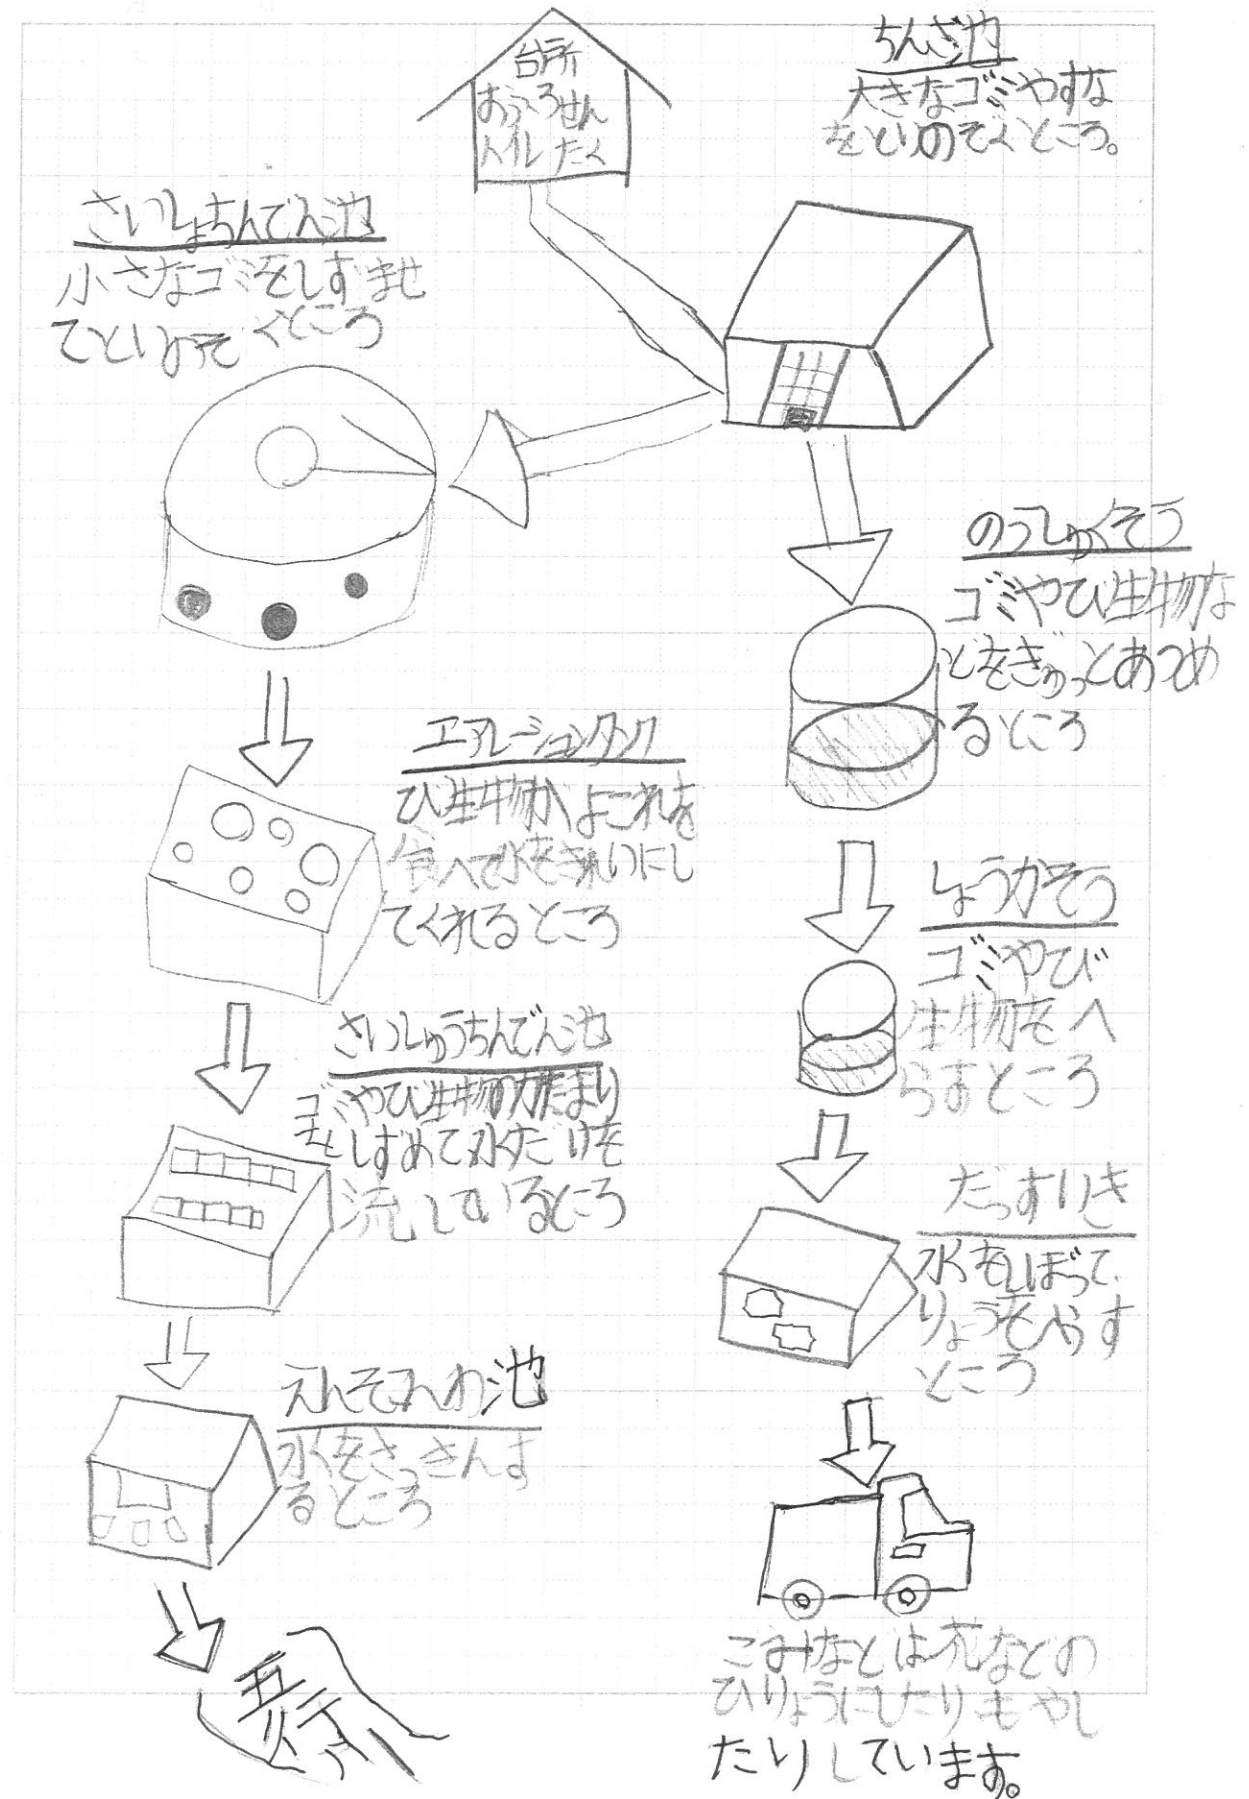 台所
おふろせん
トイレたく
ちんさ池
大きなゴミやすな
をとりのぞくところ。
さいしょちんでん池
小さなゴミをしずませ
てとりのぞくところ
のうしゅくそう
ゴミやび生物な
どをぎゅっとあつめ
るところ
エアレーションタンク
び生物がよごれを
食べて水をきれいにし
てくれるところ
しょうかそう
ゴミやび
生物をへ
らすところ
さいしゅうちんでん池
ゴミやび生物のかたまり
をしずめて水だけを
流しているところ
だっすいき
水をしぼって
りょうをへらす
ところ
えんそこんわ池
水をさっきんす
るところ
ごみなどは花などの
ひりょうにしたりもやし
たりしています。